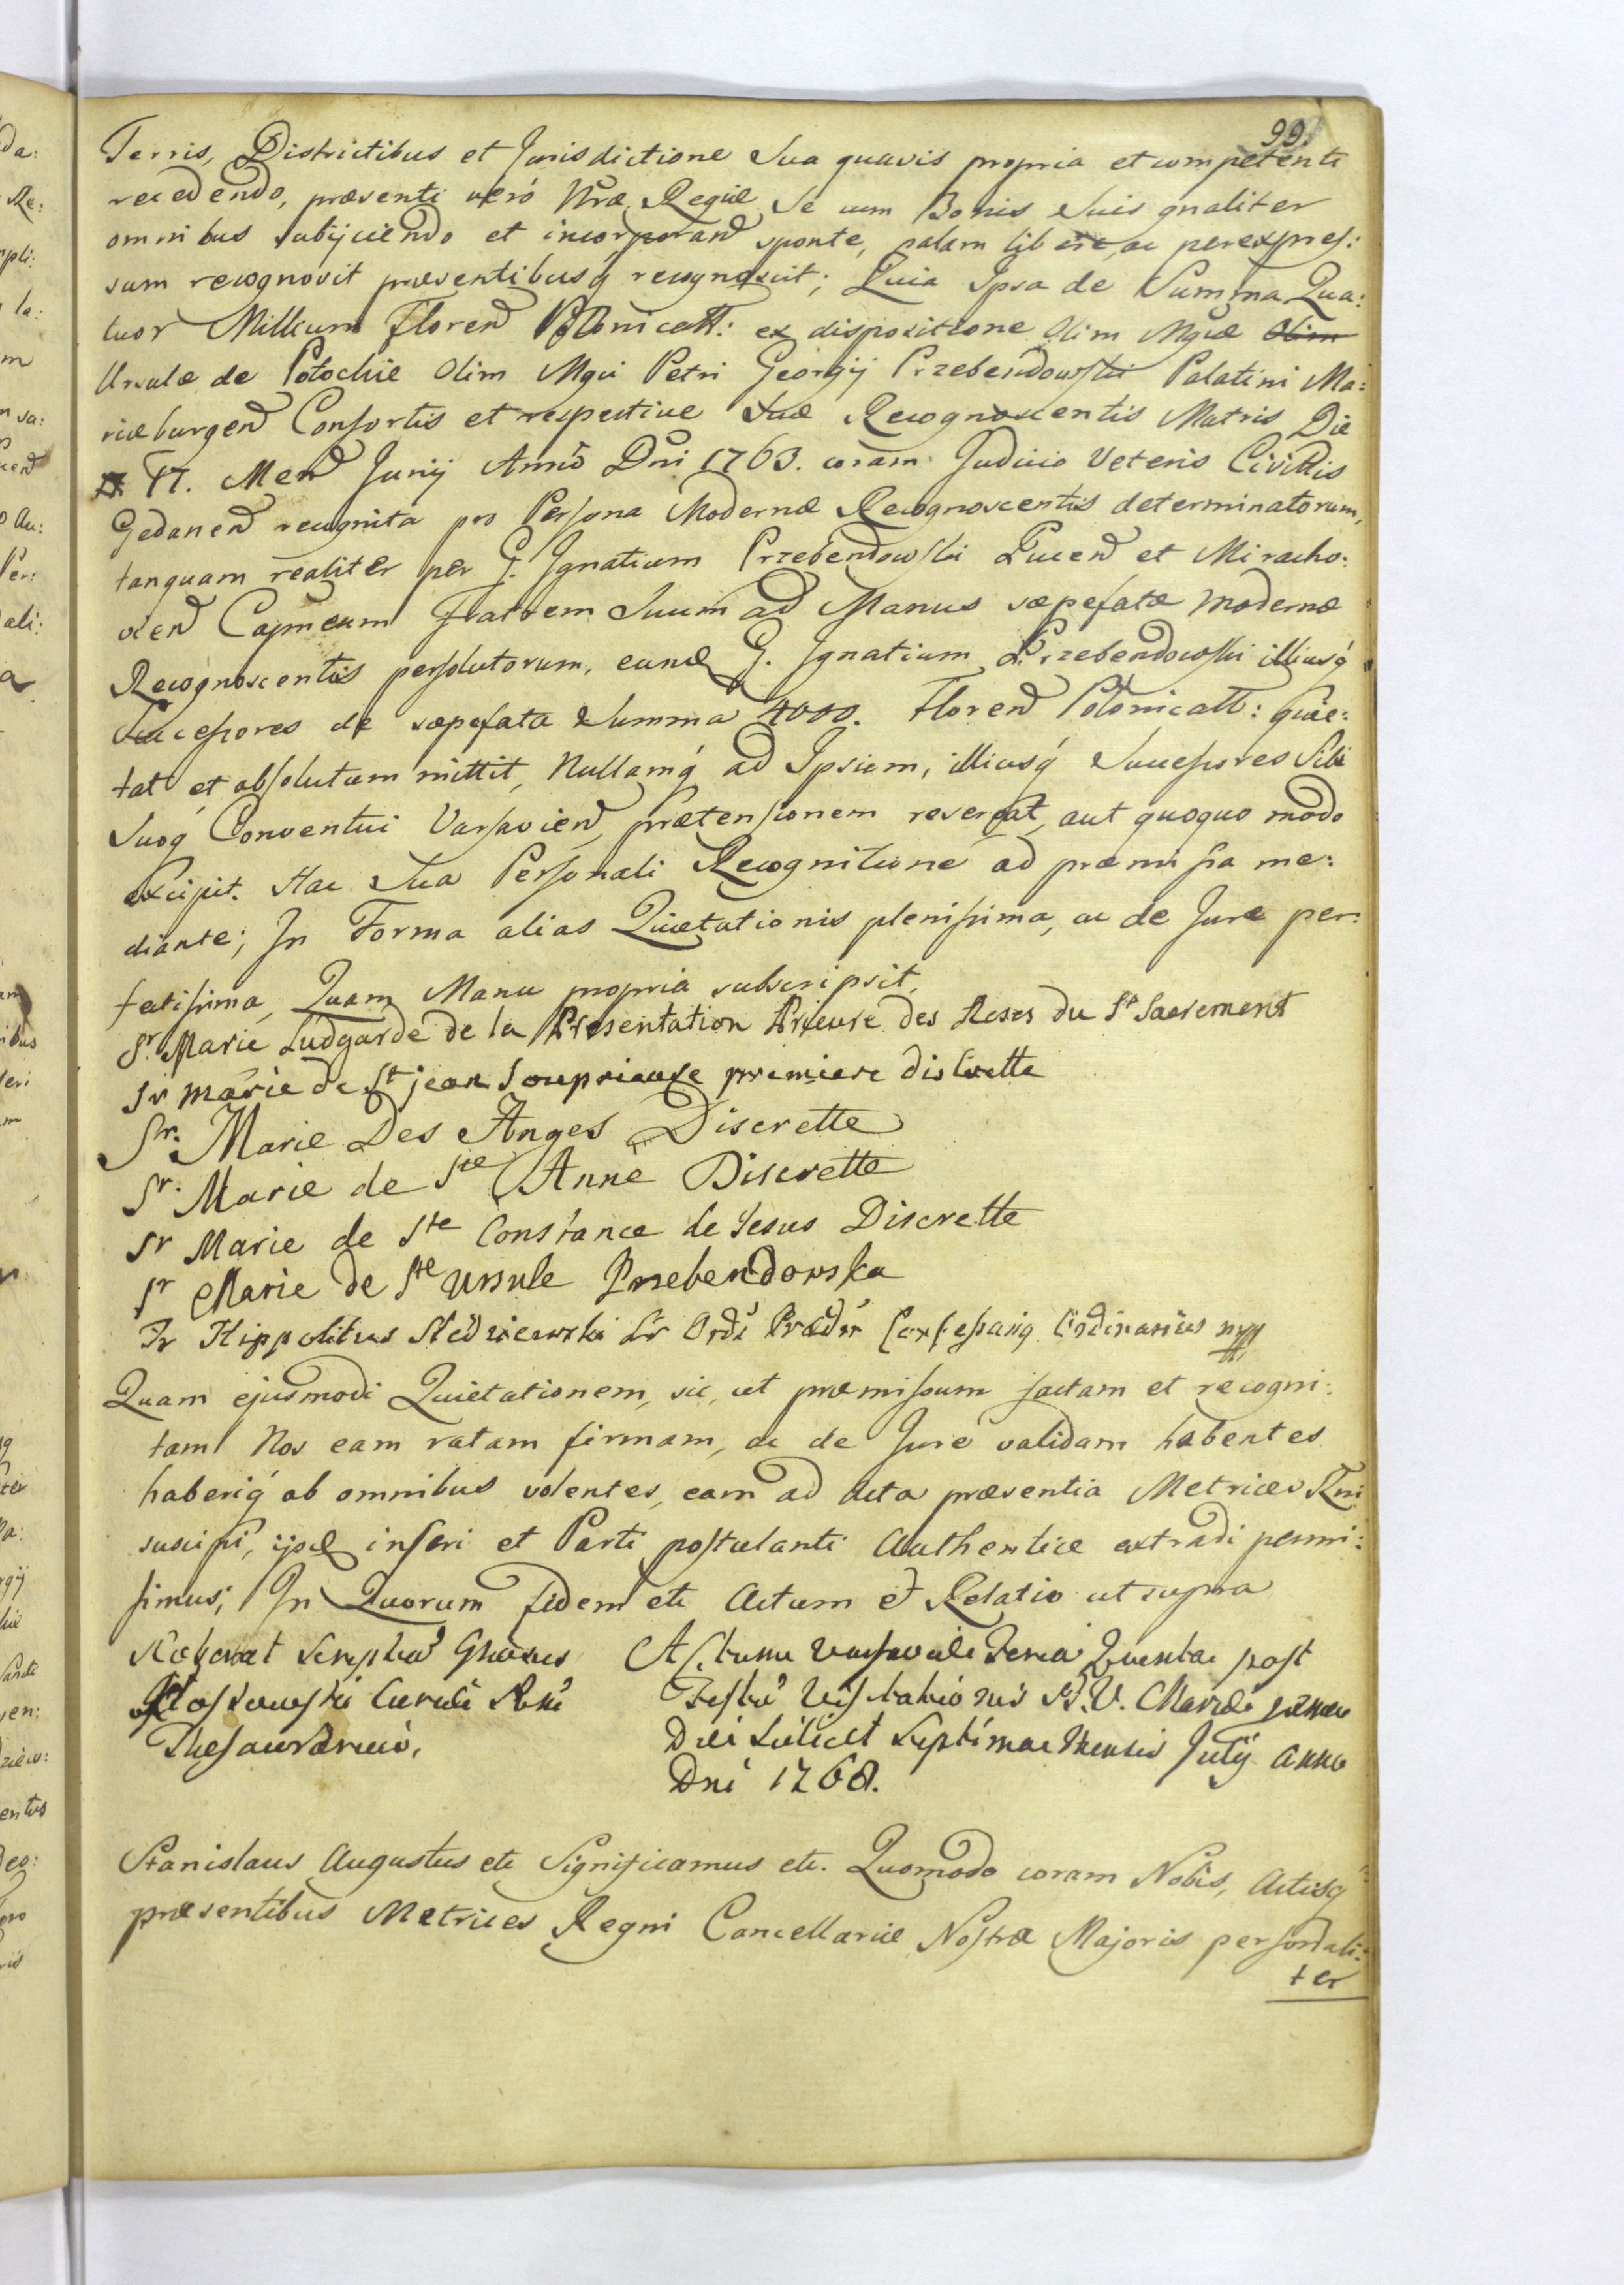 99
Terris, Districtibus et Jurisdictione Sua quavis propria et competenti
recedendo, præsenti veró Nræ Regiæ Se cum Bonis Suis gnaliter
omnibus subijciendo et incorporand sponte, palam libere, ac perexpres:
sum recognovit præsentibusq recognoscit; Quia Ipsa de Summa Qua:
tuor Millium Floren Polonicall: ex dispositione Olim Mgcæ Olim
Ursulæ de Potockie Olim Mgci Petri Georgij Przebendowski Palatini Ma:
riæburgen Consortis et respective Suæ Recognoscentis Matris Die
17. Men Junij Anno Dni 1763. coram Judicio Veteris Civittis
Gedanen recognita pro Persona Modernæ Recognoscentis determinatorum,
tanquam realiter per G. Ignatium Przebendowski Pucen et Miracho:
vien Capneum Fratrem Suum ad Manus sæpefatæ Modernæ
Recognoscentis persolutorum, eund G. Ignatium Przebendowski illiusq
Successores de sæpefata Summa 4000. Floren Polonicall: quie:
tat et absolutum mittit, Nullamq ad Ipsum, illiusq Successores Sibi
Suoq Conventui Varsavien, prætensionem reservat, aut quoquo modo
excipit. Hac Sua Personali Recognitione ad præmissa me:
diante; In Forma alias Quietationis plenissima, ac de Jure per:
fectissima, Quam Manu propria subscripsit.
Sr. Marie Ludgarde de la Presentation Prieure des Reses du St Sacrement
Sr marie de St jean Souprieure premiere discrette
Sr. Marie Des Anges Discrette
Sr. Marie de Ste Anne Discrette
Sr Marie de Ste Constance de Jesus Discrette
Sr Marie de Ste Ursule Przebendowska
Fr Hippolitus Ordi Prædr Confessariq Ordinarius mpp
Quam ejusmodi Quietationem, sic, ut præmissum factam et recogni:
tam Nos eam ratam firmam, ac de Jure validam habentes
haberiq ab omnibus volentes, eam ad Acta præsentia Metrices Rni
suscipi, ijsd inseri et Parti postulanti Authentice extradi permi:
simus; In Quorum fidem etc Actum et Relatio ut supra
Roborat Scriptu Gnosus
Curiæ Rni
Thesaurarius,
Actum Varsaviæ Feria Quinta post
Festu Visitationis B. V. Mariæ
Diei Scilicet Septima Mensis Julij anno
Dni 1768.
Stanislaus Augustus etc Significamus etc. Quomodo coram Nobis, Actisq
præsentibus Metrices Regni Cancellariæ Nostræ Majoris personali:
ter